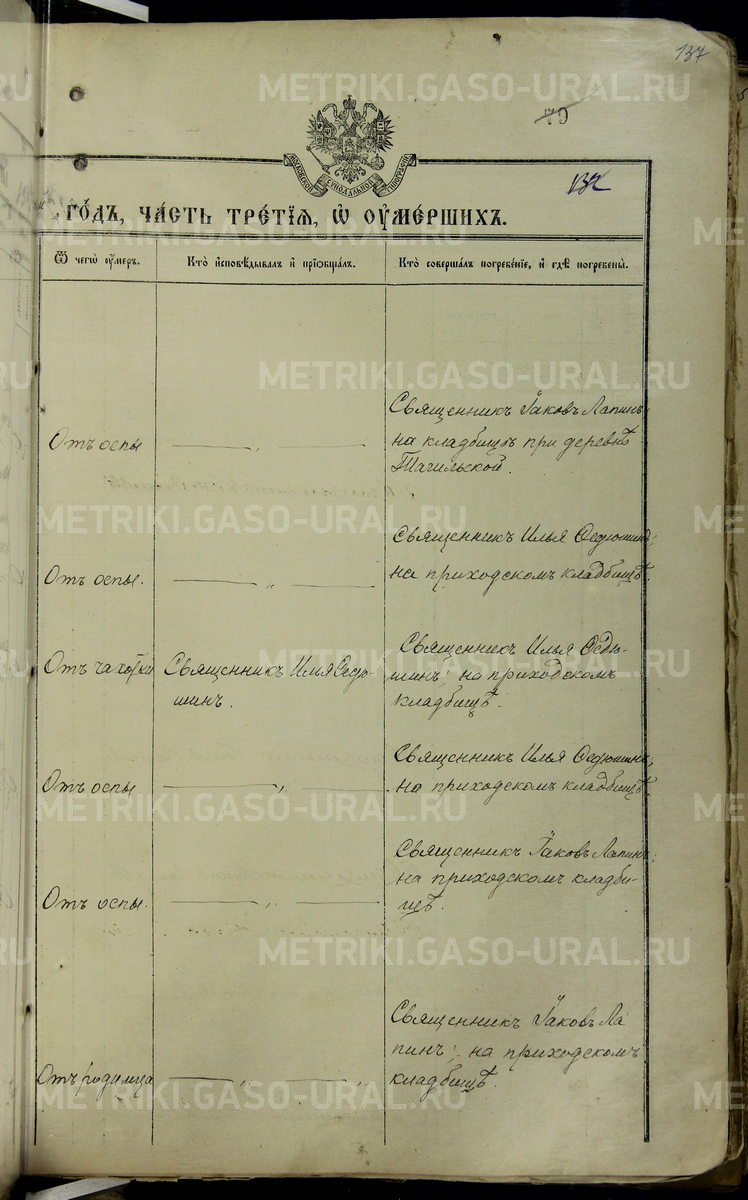 137
METRIKI.GASO-URAL.RU
79
МОСКОВСКОЙ СѴНОДАЛЬНОЙ ТИПОГРАФІИ
132
го́дъ, ча́сть тре́тїѧ, ѡ҆ ᲂу҆ме́ршихъ.
Ѿ чегѡ̀ ᲂу҆́меръ.
Кто̀ и҆сповѣ́дывалъ и҆ прїѻбща́лъ.
Кто̀ соверша́лъ погребе́нїе, и҆ гдѣ̀ погребены̀.
Отъ оспы
Священникъ Іаковъ Лапинъ;
на кладбищѣ при деревнѣ
Тагильской.
Отъ оспы.
Священникъ Илья Ѳедюшинъ;
на приходскомъ кладбищѣ.
Отъ чахотки
Священникъ Илья Ѳедю-
шинъ.
Священникъ Илья Ѳедю-
шинъ; на приходскомъ
кладбищѣ.
Отъ оспы
Священникъ Илья Ѳедюшинъ;
на приходскомъ кладбищѣ
Отъ оспы.
Священникъ Іаковъ Лапинъ;
на приходскомъ кладби-
щѣ.
Отъ родимца
Священникъ Іаковъ Ла
пинъ; на приходскомъ
кладбищѣ.